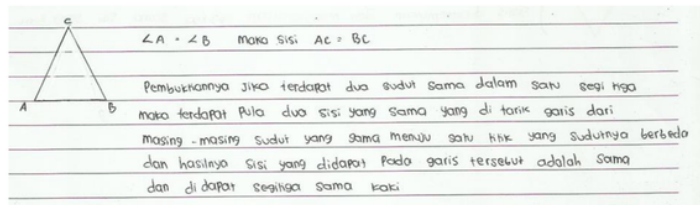 C
∠A = ∠B maka sisi AC = BC
A B
Pembuktiannya jika terdapat dua sudut sama dalam satu segi tiga
maka terdapat pula dua sisi yang sama yang di tarik garis dari
masing-masing sudut yang sama menuju satu titik yang sudutnya berbeda
dan hasilnya sisi yang didapat pada garis tersebut adalah sama
dan di dapat segitiga sama kaki